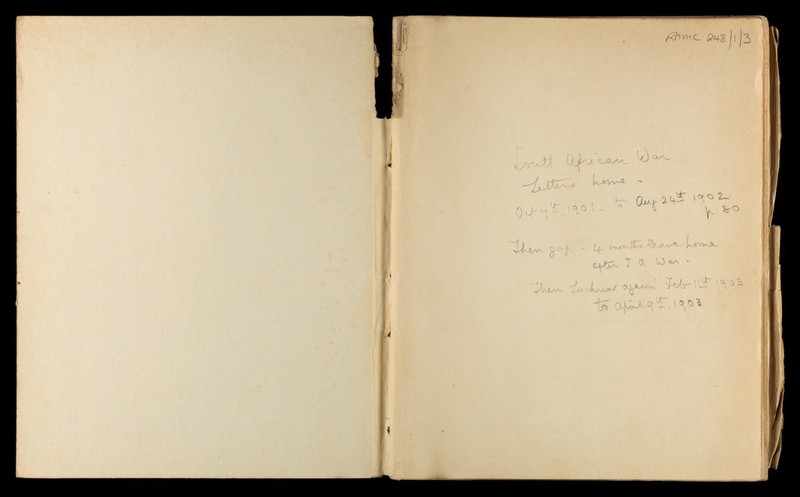 RAMC 248/1/3
South African War
Letters home -
Oct 7th, 1901. to Aug 24th 1902
p. 80
Then gap - 4 months leave home
after S. A. War.
Then Lucknow again Feb 11th 1903
to April 9th, 1903